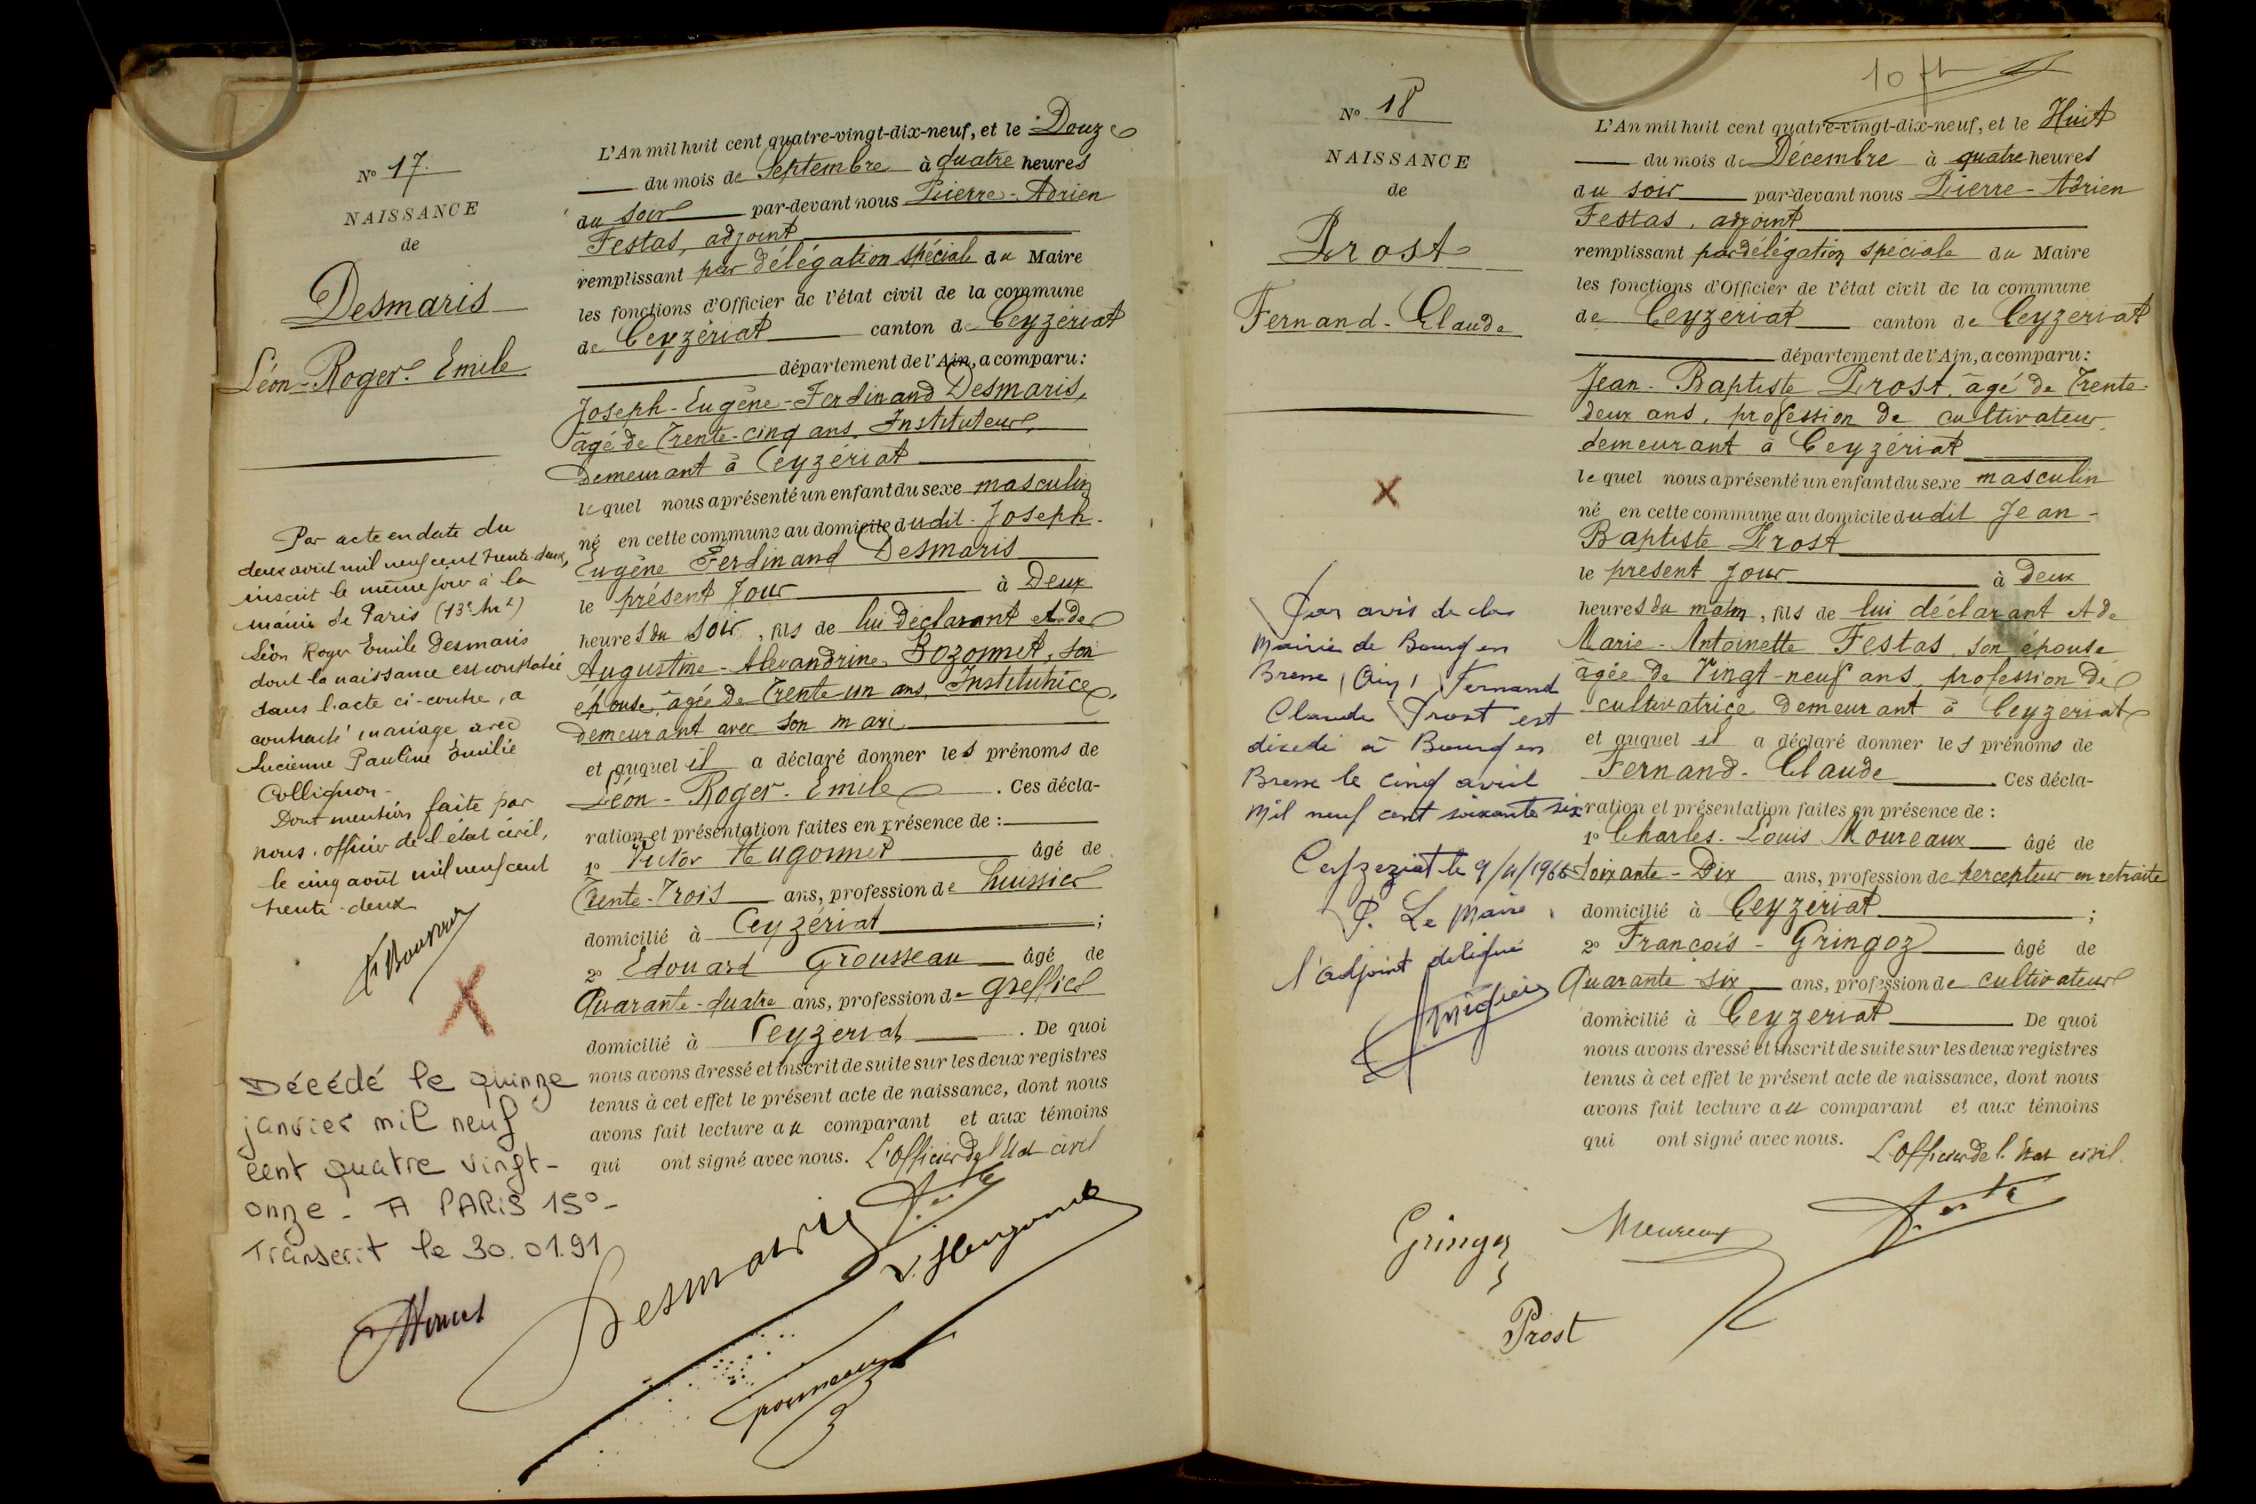 N° 17.
NAISSANCE
de
Desmaris
Léon-Roger-Emile
Par acte en date du
deux août mil neuf cent trente-deux,
inscrit le même jour à la
mairie de Paris (13e Arr)
Léon Roger Emile Desmaris
dont la naissance est constatée
dans l'acte ci-contre, a
contracté mariage avec
Lucienne Pauline Emilie
Collignon-
Dont mention faite par
nous, officier de l'état civil,
le cinq août mil neuf cent
trente-deux
Décédé le quinze
janvier mil neuf
cent quatre vingt-
onze - A PARIS 15°-
Transcrit le 30.01.91
L'An mil huit cent quatre-vingt-dix-neuf, et le Douze
du mois de Septembre à quatre heures
du soir par-devant nous Pierre-Adrien
Festas, adjoint
remplissant par délégation spéciale du Maire
les fonctions d'Officier de l'état civil de la commune
de Ceyzériat canton de Ceyzeriat
département de l'Ain, a comparu:
Joseph-Eugène-Ferdinand Desmaris,
âgé de Trente-cinq ans, Instituteur,
Demeurant à Ceyzériat
lequel nous a présenté un enfant du sexe masculin
né en cette commune au domicile dudit Joseph-
Eugène Ferdinand Desmaris
le présent jour à Deux
heures du soir, fils de lui déclarant et de
Augustine-Alexandrine Bozonnet, son
épouse, âgée de Trente un ans, Institutrice,
demeurant avec son mari
et auquel il a déclaré donner les prénoms de
Léon-Roger-Emile . Ces décla-
ration et présentation faites en présence de :
1° Victor Hugonnet âgé de
Trente-Trois ans, profession de huissier
domicilié à Ceyzériat ;
2° Edouard Grousseau âgé de
Quarante-quatre ans, profession de greffier
domicilié à Ceyzeriat . De quoi
nous avons dressé et inscrit de suite sur les deux registres
tenus à cet effet le présent acte de naissance, dont nous
avons fait lecture au comparant et aux témoins
qui ont signé avec nous. L'Officier de l'Etat civil
Desmaris
V. Hugonnet
N° 18
NAISSANCE
de
Prost
Fernand-Claude
Par avis de la
Mairie de Bourg en
Bresse (Ain), Fernand
Claude Prost est
décédé à Bourg en
Bresse le cinq avril
Mil neuf cent soixante six
Ceyzeriat le 9/4/1966
P. Le Maire,
l'adjoint délégué
10
L'An mil huit cent quatre-vingt-dix-neuf, et le Huit
du mois de Décembre à quatre heures
du soir par-devant nous Pierre-Adrien
Festas, adjoint
remplissant par délégation spéciale du Maire
les fonctions d'Officier de l'état civil de la commune
de Ceyzeriat canton de Ceyzeriat
département de l'Ain, a comparu:
Jean-Baptiste Prost, âgé de Trente-
deux ans, profession de cultivateur,
demeurant à Ceyzériat
lequel nous a présenté un enfant du sexe masculin
né en cette commune au domicile dudit Jean-
Baptiste Prost
le présent jour à Deux
heures du matin, fils de lui déclarant et de
Marie-Antoinette Festas, son épouse
âgée de Vingt-neuf ans, profession de
cultivatrice demeurant à Ceyzeriat
et auquel il a déclaré donner les prénoms de
Fernand-Claude . Ces décla-
ration et présentation faites en présence de :
1° Charles-Louis Moureaux âgé de
Soixante-Dix ans, profession de percepteur en retraite
domicilié à Ceyzériat ;
2° François-Gringoz âgé de
Quarante-six ans, profession de cultivateur
domicilié à Ceyzeriat De quoi
nous avons dressé et inscrit de suite sur les deux registres
tenus à cet effet le présent acte de naissance, dont nous
avons fait lecture au comparant et aux témoins
qui ont signé avec nous. L'Officier de l'Etat civil.
Gringoz
Moureaux
Prost